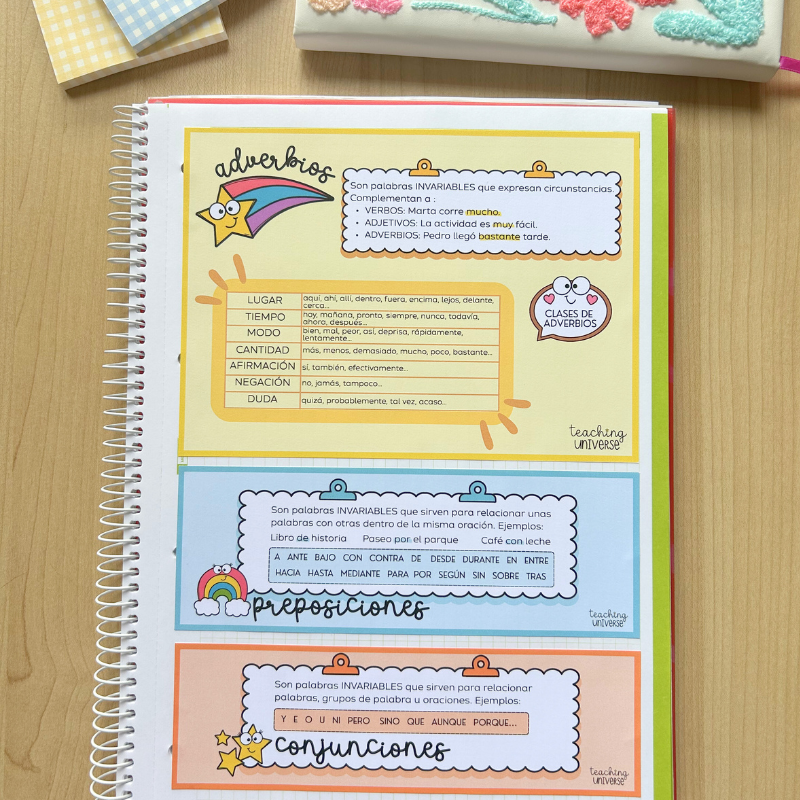 adverbios
Son palabras INVARIABLES que expresan circunstancias.
Complementan a :
• VERBOS: Marta corre mucho.
• ADJETIVOS: La actividad es muy fácil.
• ADVERBIOS: Pedro llegó bastante tarde.
CLASES DE
ADVERBIOS
LUGAR aquí, ahí, allí, dentro, fuera, encima, lejos, delante,
cerca...
TIEMPO hoy, mañana, pronto, siempre, nunca, todavía,
ahora, después...
MODO bien, mal, peor, así, deprisa, rápidamente,
lentamente...
CANTIDAD más, menos, demasiado, mucho, poco, bastante...
AFIRMACIÓN sí, también, efectivamente...
NEGACIÓN no, jamás, tampoco...
DUDA quizá, probablemente, tal vez, acaso...
teaching
UNIVERSE
Son palabras INVARIABLES que sirven para relacionar unas
palabras con otras dentro de la misma oración. Ejemplos:
Libro de historia Paseo por el parque Café con leche
A ANTE BAJO CON CONTRA DE DESDE DURANTE EN ENTRE
HACIA HASTA MEDIANTE PARA POR SEGÚN SIN SOBRE TRAS
preposiciones
teaching
UNIVERSE
Son palabras INVARIABLES que sirven para relacionar
palabras, grupos de palabra u oraciones. Ejemplos:
Y E O U NI PERO SINO QUE AUNQUE PORQUE...
conjunciones
teaching
UNIVERSE